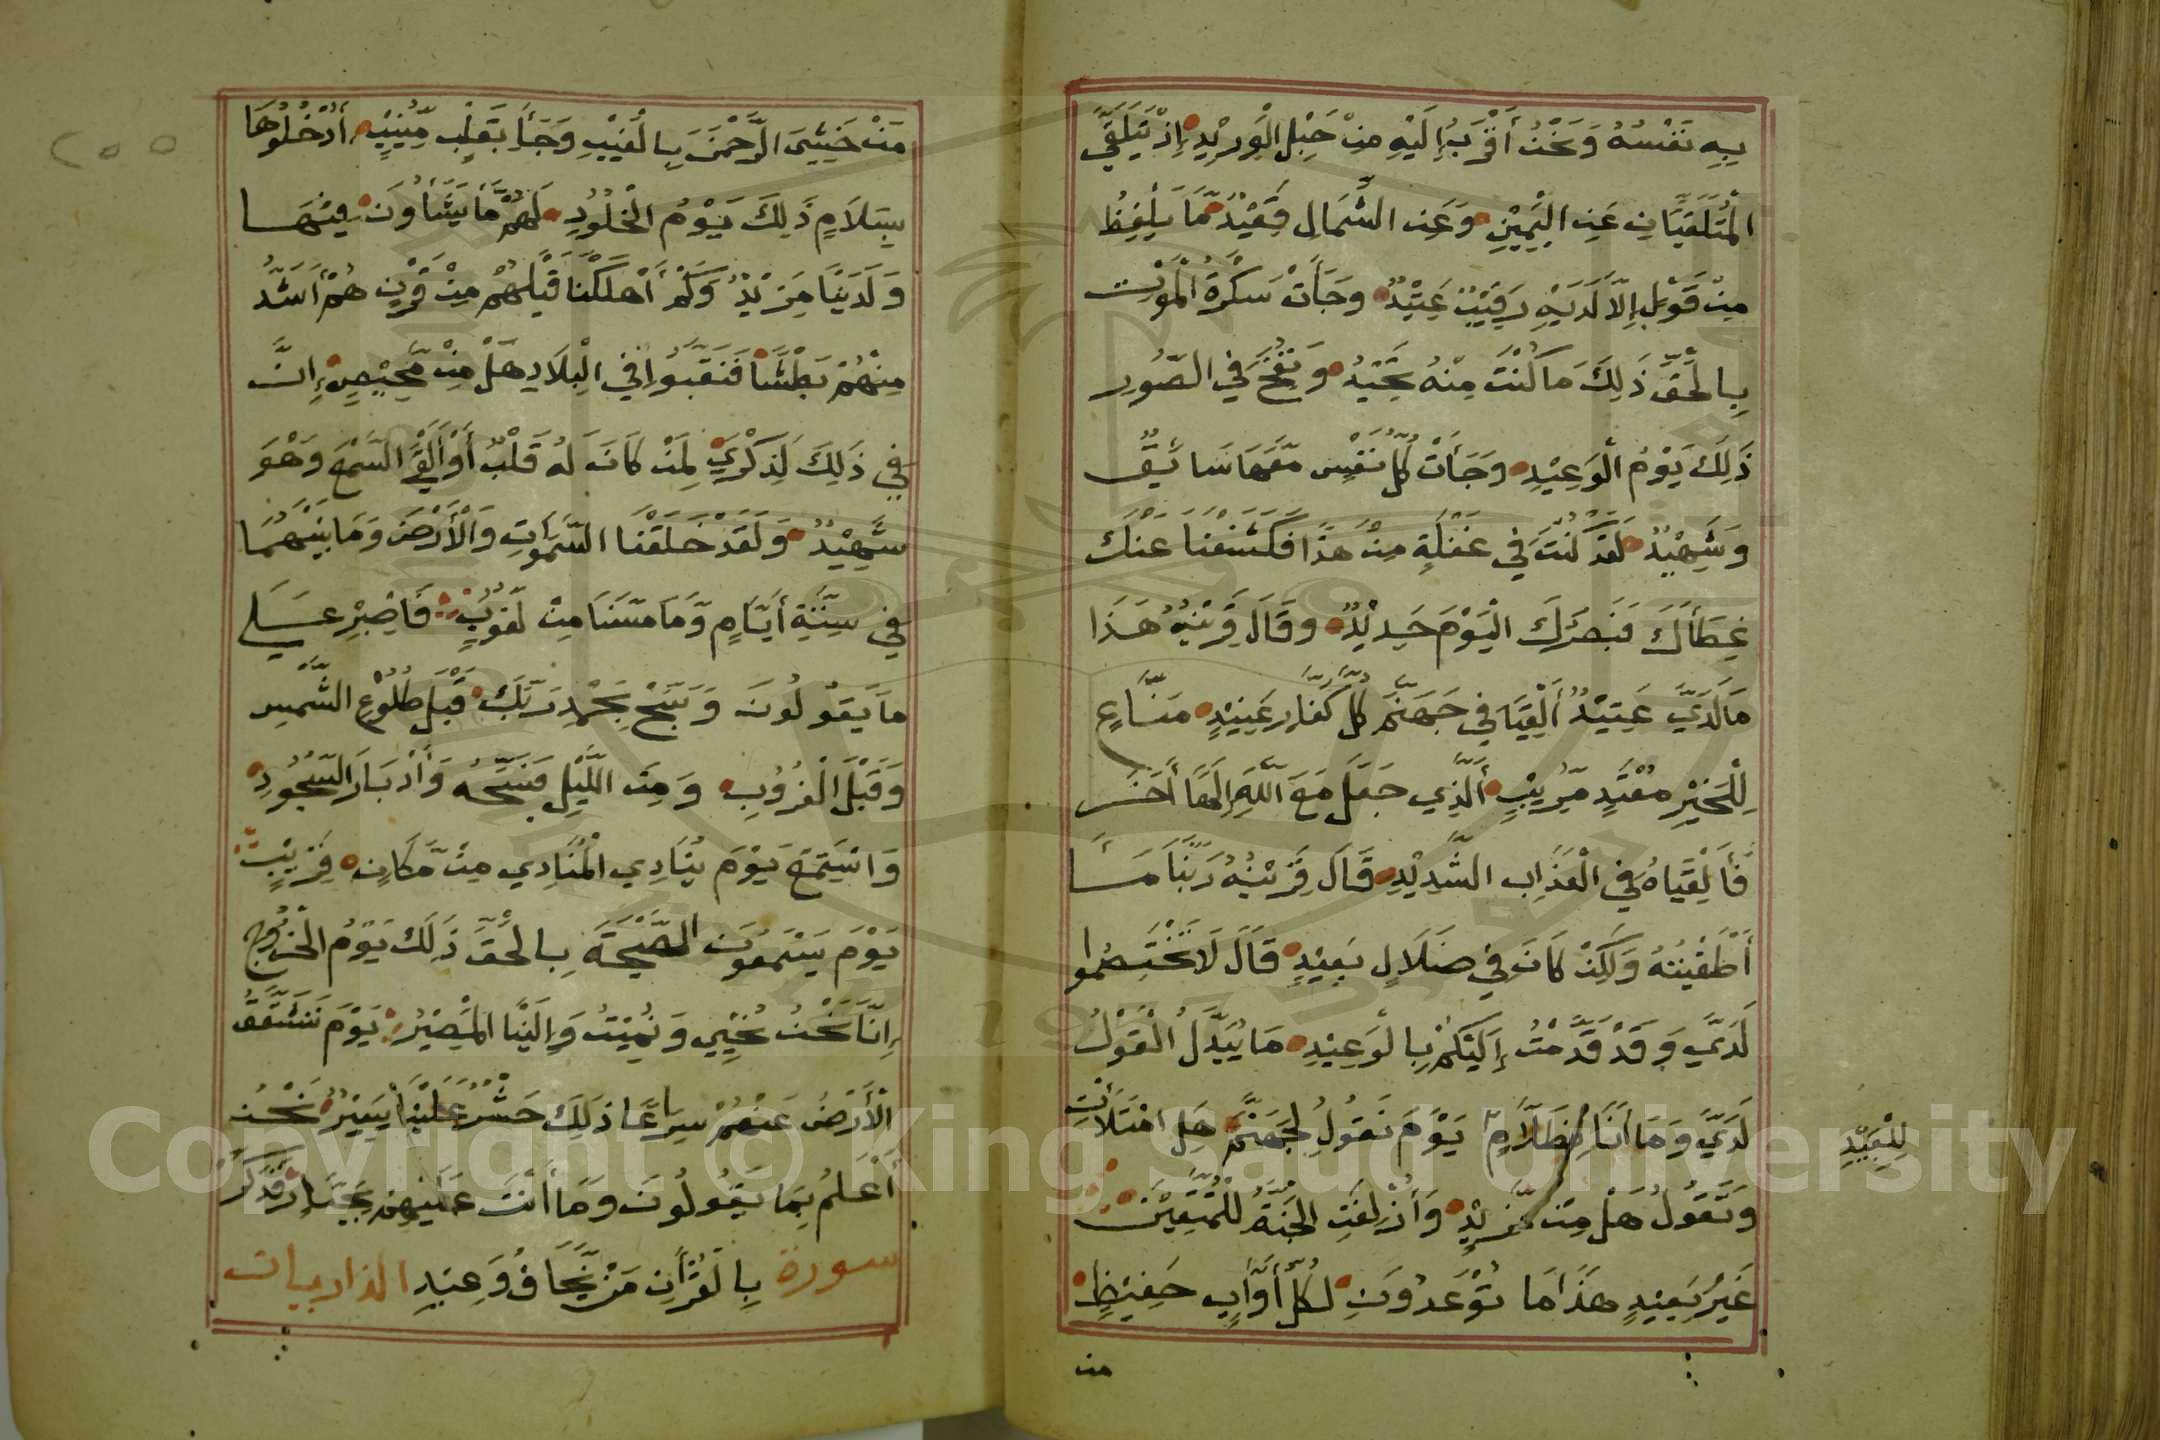 بِهِ نَفْسُهُ وَنَحْنُ أَقْرَبُ إِلَيْهِ مِنْ حَبْلِ الْوَرِيْدِ إِذْ يَتَلَقَّى
الْمُتَلَقِّيَانِ عَنِ الْيَمِيْنِ وَعَنِ الشِّمَالِ قَعِيْدٌ مَّا يَلْفِظُ
مِنْ قَوْلٍ إِلَّا لَدَيْهِ رَقِيْبٌ عَتِيْدٌ وَجَأَتْ سَكْرَةُ الْمَوْتِ
بِالْحَقِّ ذَلِكَ مَا كُنْتَ مِنْهُ تَحِيْدُ وَنُفِخَ فِي الصُّوْرِ
ذَلِكَ يَوْمُ الْوَعِيْدِ وَجَأَتْ كُلُّ نَفْسٍ مَّعَهَا سَائِقٌ
وَشَهِيْدٌ لَقَدْ كُنْتَ فِي غَفْلَةٍ مِنْ هَذَا فَكَشَفْنَا عَنْكَ
غِطَأَكَ فَبَصَرُكَ الْيَوْمَ حَدِيْدٌ وَقَالَ قَرِيْنُهُ هَذَا
مَا لَدَيَّ عَتِيْدٌ أَلْقِيَا فِي جَهَنَّمَ كُلَّ كَفَّارٍ عَنِيْدٍ مَنَّاعٍ
لِلْخَيْرِ مُعْتَدٍ مُّرِيْبٍ أَلَّذِي جَعَلَ مَعَ اللَّهِ إِلَهًا أَخَرَ
فَأَلْقِيَاهُ فِي الْعَذَابِ الشَّدِيْدِ قَالَ قَرِيْنُهُ رَبَّنَا مَا
أَطْغَيْتُهُ وَلَكِنْ كَانَ فِي ضَلَالٍ بَعِيْدٍ قَالَ لَا تَخْتَصِمُوا
لَدَيَّ وَقَدْ قَدَّمْتُ إِلَيْكُمْ بِالْوَعِيْدِ مَا يُبَدَّلُ الْقَوْلُ
لَدَيَّ وَمَا أَنَا بِظَلَّامٍ يَوْمَ نَقُولُ لِجَهَنَّمَ هَلِ امْتَلَأْتِ
لِلْعَبِيْدِ
وَتَقُولُ هَلْ مِنْ مَّزِيْدٍ وَأُزْلِفَتِ الْجَنَّةُ لِلْمُتَّقِيْنَ
غَيْرَ بَعِيْدٍ هَذَا مَا تُوْعَدُوْنَ لِكُلِّ أَوَّابٍ حَفِيْظٍ
من
مَنْ خَشِيَ الرَّحْمَنَ بِالْغَيْبِ وَجَأَ بِقَلْبٍ مُّنِيْبٍ أُدْخُلُوْهَا
بِسَلَامٍ ذَلِكَ يَوْمُ الْخُلُوْدِ لَهُمْ مَّا يَشَأُوْنَ فِيْهَا
وَلَدَيْنَا مَزِيْدٌ وَكَمْ أَهْلَكْنَا قَبْلَهُمْ مِنْ قَرْنٍ هُمْ أَشَدُّ
مِنْهُمْ بَطْشًا فَنَقَّبُوا فِي الْبِلَادِ هَلْ مِنْ مَّحِيْصٍ إِنَّ
فِي ذَلِكَ لَذِكْرَى لِمَنْ كَانَ لَهُ قَلْبٌ أَوْ أَلْقَى السَّمْعَ وَهُوَ
شَهِيْدٌ وَلَقَدْ خَلَقْنَا السَّمَوَاتِ وَالْأَرْضَ وَمَا بَيْنَهُمَا
فِي سِتَّةِ أَيَّامٍ وَّمَا مَسَّنَا مِنْ لُّغُوْبٍ فَاصْبِرْ عَلَى
مَا يَقُوْلُوْنَ وَسَبِّحْ بِحَمْدِ رَبِّكَ قَبْلَ طُلُوْعِ الشَّمْسِ
وَقَبْلَ الْغُرُوْبِ وَمِنَ اللَّيْلِ فَسَبِّحْهُ وَأَدْبَارَ السُّجُوْدِ
وَاسْتَمِعْ يَوْمَ يُنَادِي الْمُنَادِي مِنْ مَّكَانٍ قَرِيْبٍ
يَوْمَ يَسْمَعُوْنَ الصَّيْحَةَ بِالْحَقِّ ذَلِكَ يَوْمُ الْخُرُوْجِ
إِنَّا نَحْنُ نُحْيِي وَنُمِيْتُ وَإِلَيْنَا الْمَصِيْرُ يَوْمَ تَشَقَّقُ
الْأَرْضُ عَنْهُمْ سِرَاعًا ذَلِكَ حَشْرٌ عَلَيْنَا يَسِيْرٌ نَحْنُ
أَعْلَمُ بِمَا يَقُوْلُوْنَ وَمَا أَنْتَ عَلَيْهِمْ بِجَبَّارٍ فَذَكِّرْ
سورة بِالْقُرْأَنِ مَنْ يَّخَافُ وَعِيْدِ الذاريات
Copyright © King Saud University